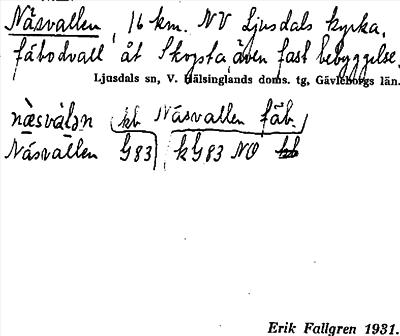 Näsvallen, 16 km. NV Ljusdals kyrka,
fäbodvall åt Skogsta, även fast bebyggelse.
Ljusdals sn, V. Hälsinglands doms. tg, Gävleborgs län.
næsvàlən kb Näsvallen fäb.
Näsvallen G83 kG83 NO
Erik Fallgren 1931.